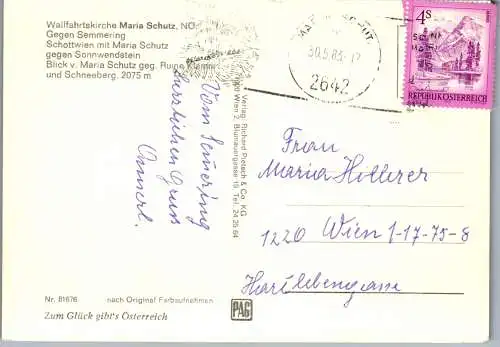 Wallfahrtskirche Maria Schutz, NÖ
Gegen Semmering
Schottwien mit Maria Schutz
gegen Sonnwendstein
Blick v. Maria Schutz geg. Ruine Klamm
und Schneeberg, 2075 m
30.5.83-17
2642
4 S
REPUBLIK ÖSTERREICH
Vom Semmering
herzlichen Gruss
Annerl.
Verlag: Richard Pietsch & Co. KG
Wien 2, Blumauergasse 19, Tel. 24 25 64
Frau
Maria Hollerer
1220 Wien 1-17-75-8
Hartlebengasse
Nr. 81676 nach Original Farbaufnahmen
PAG
Zum Glück gibt's Österreich